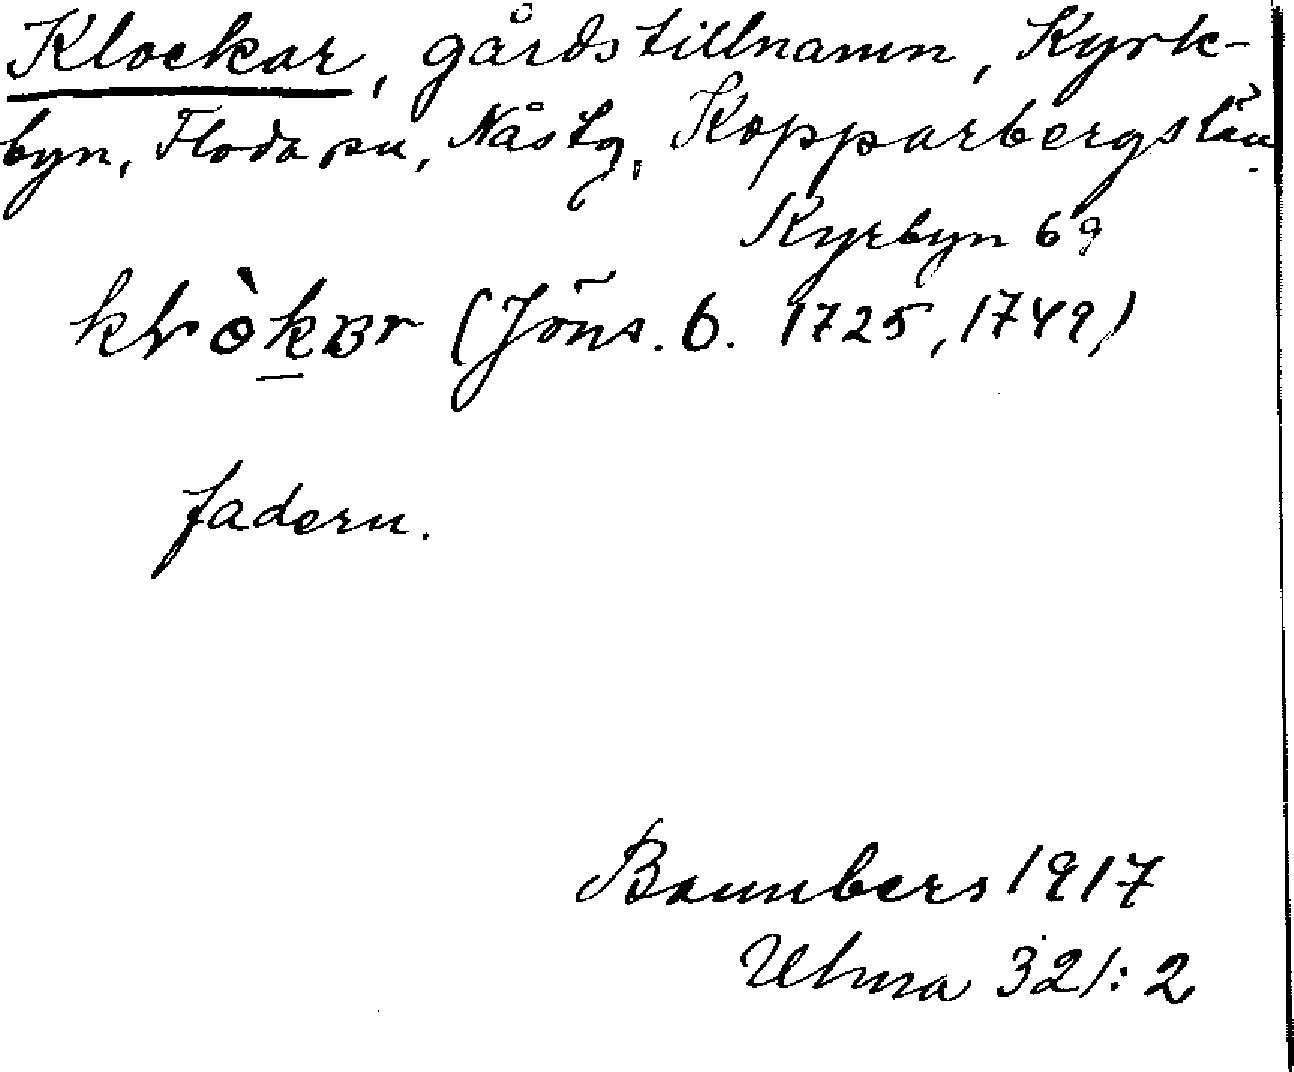 Klockar, gårdstillnamn, Kyrk-
byn, Floda sn, Nås tg, Kopparbergs län
Kyrbyn 69
(Jöns. b. 1725, 1749)
fadern.
1917
Ulma 321:2